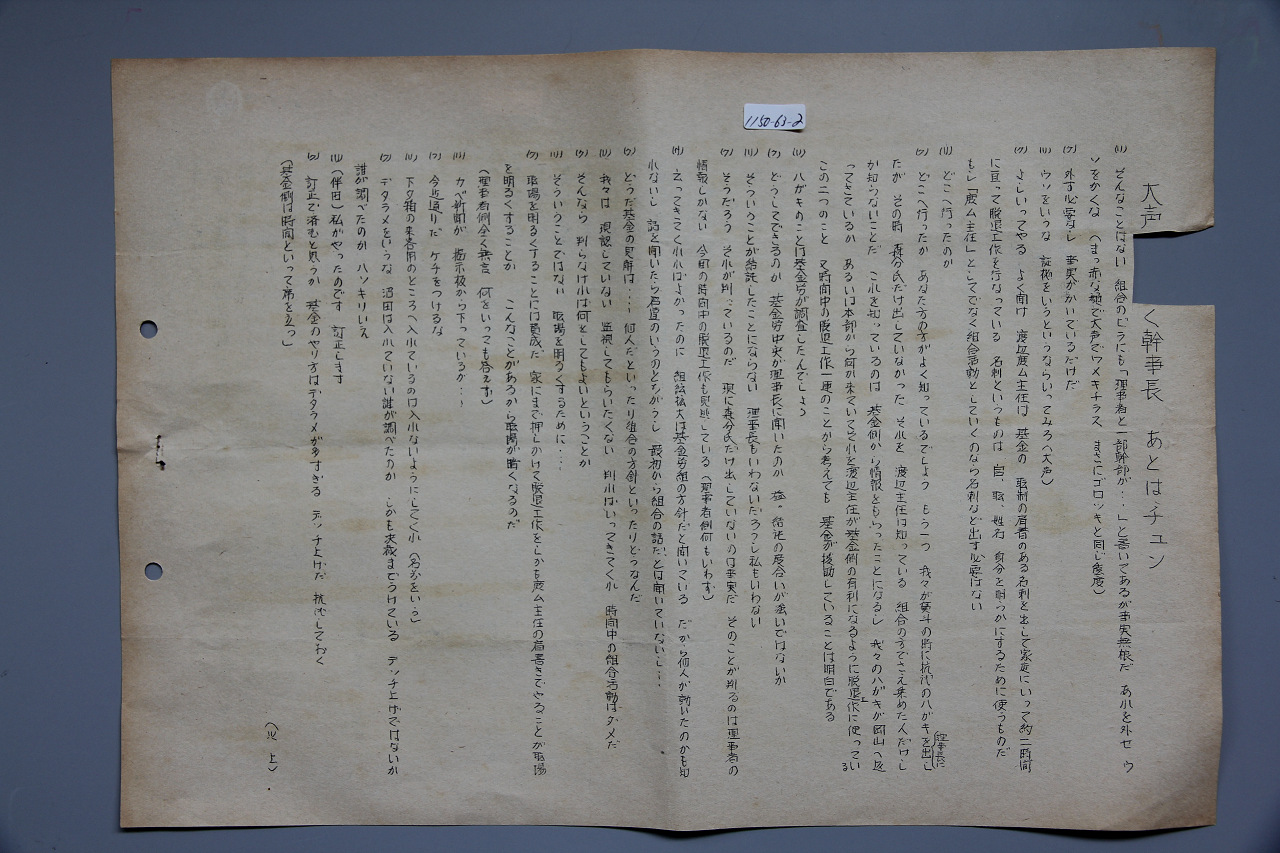 1150-63-2
大声 く幹事長 あとはチュン
(リ) そんなことはない 組合のビラにも「理事者と一部幹部が‥」と書いてあるが事実無根だ あれを外せ ウ
ソをかくな (まっ赤な顔で大声でワメキチラス まさにゴロツキと同じ態度)
(ク) 外す必要なし 事実がかいているだけだ
(リ) ウソをいうな 証拠をいうというならいってみろ(大声)
(ク) よしいってやる よく聞け 渡辺庶ム主任は 基金の 職制の肩書のある名刺を出して家庭にいって約二時間
に亘って脱退工作を行なっている 名刺というものは 自、職、姓名 身分を明らかにするために使うものだ
もし「庶ム主任」としてでなく組合活動としていくのなら名刺など出す必要はない
(リ) どこへ行ったのか
(ク) どこへ行ったか あなた方の方がよく知っているでしょう もう一つ 我々が 斗の時に抗ギのハガキを理事長に出し
たが その時 森分氏だけ出していなかった それを 渡辺主任は知っている 組合の方でさえ集めた人だけし
か知らないことだ これを知っているのは 基金側から情報をもらったことになるし 我々のハガキが岡山へ返
ってきているか あるいは本部から何か来ていてそれを渡辺主任が基金側の有利になるように脱退工作に使ってい
る
この二つのこと 又時間中の脱退工作一連のことから考えても 基金が援助していることは明白である
(リ) ハガキのことは基金労が調査したんでしょう
(ク) どうしてできるのか 基金労中央が理事長に聞いたのか 益々結託の度合いが強いではないか
(リ) そういうことが結託したことにならない 理事長もいわないだろうし私もいわない
(ク) そうだろう それが判っているのだ 現に森分氏だけ出していないのは事実だ そのことが判るのは理事者の
情報しかない 今町の時間中の脱退工作も見逃している(理事者側何もいわず)
(サ) えってきてくれればよかったのに 組織拡大は基金労組の方針だと聞いている だから何人か動いたのかも知
れないし 話を聞いたら君達のいうのとちがうし 最初から組合の話だ‥とは聞いていないし‥
(ク) どうだ基金の見解は‥‥ 何人だといったり組合の方針といったりどうなんだ
(リ) 我々は 現認していない 監視してもらいたくない 判ればいってきてくれ 時間中の組合活動はダメだ
(ク) そんなら 判らなければ何をしてもよいということか
(リ) そういうことではない 職場を明るくするために‥‥
(ク) 職場を明るくすることには賛成だ 家にまで押しかけて脱退工作をしかも庶ム主任の肩書きでやることが職場
を明るくすることか こんなことがあるから職場が暗くなるのだ
(理事者側全く無言 何をいっても答えず)
(リ) カベ新聞が 掲示板から下っているが‥
(ク) 今迄通りだ ケチをつけるな
(リ) 下タ箱の来客用のところへ入れているのは入れないようにしてくれ (名がをいう)
(ク) デタラメをいうな 沼田は入れていない誰が調べたのか しかも決裁までうけている デッチ上げではないか
誰が調べたのか ハッキリいえ
(リ) (伴田)私がやったのです 訂正します
(ク) 訂正で済むと思うか 基金のやり方はデタラメが多すぎる デッチ上げだ 抗ギしておく
(基金側は時間といって席を立つ)
(以上)